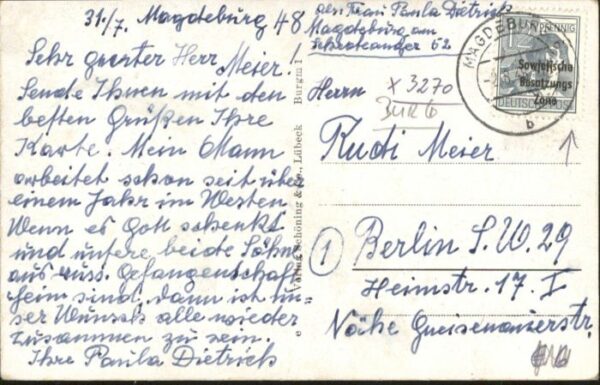 31./7. Magdeburg 48
Sehr geerter Herr
Meier!
Sende Ihnen mit den
besten Grüßen Ihre
Karte. Mein Mann
arbeitet schon seit über
einem Jahr im Westen
Wenn es Gott schenkt
und unsere beide Söhne
aus russ. Gefangenschaft
heim sind, dann ist un
ser Wunsch alle wieder
zusammen zu sein.
Ihre Paula Dietrich
Verlag Schöning & Co., Lübeck Burgm 1
abs. Frau Paula Dietrich
Magdeburg am
62
MAGDEBURG
b
PFENNIG
12
Sowjetische
Besatzungs
Zone
DEUTSCHE POST
x 3270
BURG
Herrn
Rudi Meier
1 Berlin S.W. 29
Heimstr. 17. I
Nähe Gneisenauerstr.